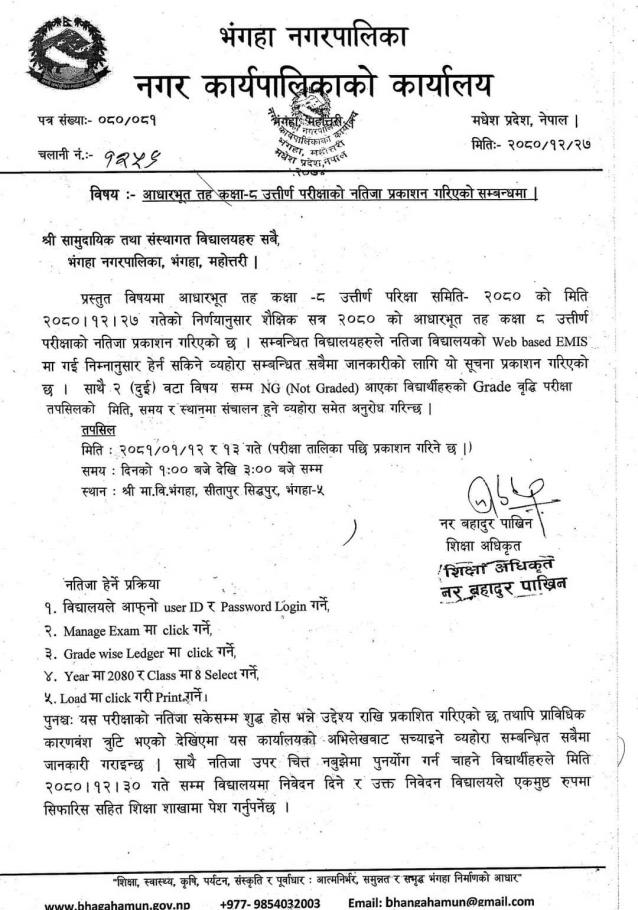 भंगहा नगरपालिका
नगर कार्यपालिकाको कार्यालय
पत्र संख्याः- ०८०/०८१
भंगहा, महोत्तरी
मधेश प्रदेश, नेपाल |
मितिः- २०८०/१२/२७
चलानी नं.:- १२५६
विषय :- आधारभूत तह कक्षा-८ उत्तीर्ण परीक्षाको नतिजा प्रकाशन गरिएको सम्बन्धमा |
श्री सामुदायिक तथा संस्थागत विद्यालयहरु सबै,
भंगहा नगरपालिका, भंगहा, महोत्तरी |
प्रस्तुत विषयमा आधारभूत तह कक्षा -८ उत्तीर्ण परिक्षा समिति- २०८० को मिति
२०८०|१२|२७ गतेको निर्णयानुसार शैक्षिक सत्र २०८० को आधारभूत तह कक्षा ८ उत्तीर्ण
परीक्षाको नतिजा प्रकाशन गरिएको छ | सम्बन्धित विद्यालयहरुले नतिजा विद्यालयको Web based EMIS
मा गई निम्नानुसार हेर्न सकिने व्यहोरा सम्बन्धित सबैमा जानकारीको लागि यो सूचना प्रकाशन गरिएको
छ | साथै २ (दुई) वटा विषय सम्म NG (Not Graded) आएका विद्यार्थीहरुको Grade वृद्धि परीक्षा
तपसिलको मिति, समय र स्थानमा संचालन हुने व्यहोरा समेत अनुरोध गरिन्छ |
तपसिल
मिति : २०८१/०१/१२ र १३ गते (परीक्षा तालिका पछि प्रकाशन गरिने छ |)
समय : दिनको १:०० बजे देखि ३:०० बजे सम्म
स्थान : श्री मा.वि.भंगहा, सीतापुर सिद्धपुर, भंगहा-५
नर बहादुर पाख्रिन
शिक्षा अधिकृत
शिक्षा अधिकृत
नर बहादुर पाख्रिन
नतिजा हेर्ने प्रक्रिया
१. विद्यालयले आफ्नो user ID र Password Login गर्ने,
२. Manage Exam मा click गर्ने,
३. Grade wise Ledger मा click गर्ने,
४. Year मा 2080 र Class मा 8 Select गर्ने,
५. Load मा click गरी Print गर्ने।
पुनश्चः यस परीक्षाको नतिजा सकेसम्म शुद्ध होस भन्ने उद्देश्य राखि प्रकाशित गरिएको छ, तथापि प्राविधिक
कारणवंश त्रुटि भएको देखिएमा यस कार्यालयको अभिलेखवाट सच्याइने व्यहोरा सम्बन्धित सबैमा
जानकारी गराइन्छ | साथै नतिजा उपर चित्त नबुझेमा पुनर्योग गर्न चाहने विद्यार्थीहरुले मिति
२०८०|१२|३० गते सम्म विद्यालयमा निवेदन दिने र उक्त निवेदन विद्यालयले एकमुष्ठ रुपमा
सिफारिस सहित शिक्षा शाखामा पेश गर्नुपर्नेछ ।
"शिक्षा, स्वास्थ्य, कृषि, पर्यटन, संस्कृति र पूर्वाधार : आत्मनिर्भर, समुन्नत र समृद्ध भंगहा निर्माणको आधार"
www.bhagahamun.gov.np +977- 9854032003 Email: bhangahamun@gmail.com